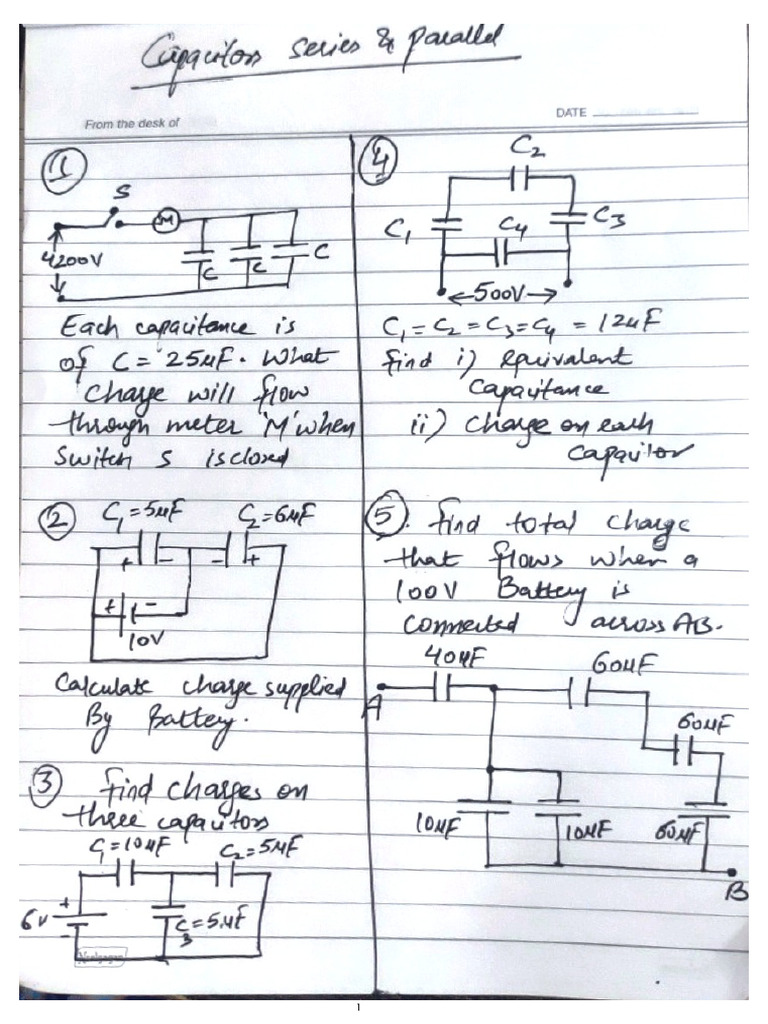 Capacitors series & parallel
From the desk of
DATE
①
S
M
4200V
C
C
C
Each capacitance is
of C = 25μF. What
charge will flow
through meter 'M' when
Switch S is closed
②
C₁=5μF
C₂=6μF
+
-
-
+
+
-
10V
Calculate charge supplied
By Battery.
③ find charges on
three capacitors
C₁=10μF
C₂=5μF
+
6V
-
C₃=5μF
④
C₂
C₁
C₄
C₃
←500V→
C₁ = C₂ = C₃ = C₄ = 12μF
find i) equivalent
capacitance
ii) charge on each
capacitor
⑤. find total charge
that flows when a
100V Battery is
connected across AB.
40μF
60μF
A
60μF
10μF
10μF
60μF
B
1